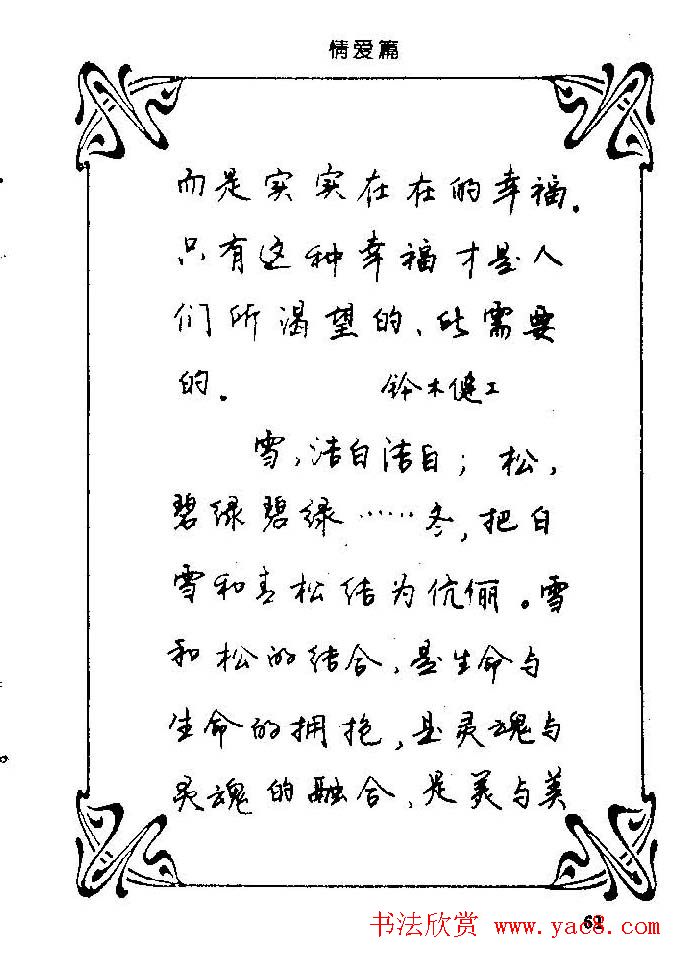 情爱篇
而是实实在在的幸福。
只有这种幸福才是人
们所渴望的、所需要
的。 铃木健二
雪，洁白洁白；松，
碧绿碧绿……冬，把白
雪和青松结为伉俪。雪
和松的结合，是生命与
生命的拥抱，是灵魂与
灵魂的融合，是美与美
书法欣赏 www.yac8.com